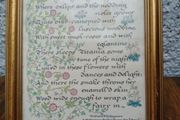 Where oxlips and the nodding
violet grows
Quite over-canopied with
luscious woodbine
With sweet musk-roses and with
eglantine
There sleeps Titania some
time of the night
Lulled in these flowers with
dances and delight:
And there the snake throws her
enamell'd skin,
Weed wide enough to wrap a
fairy in